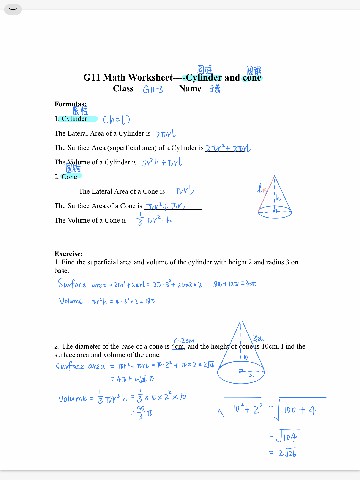 圆柱 圆锥
G11 Math Worksheet---Cylinder and cone
Class G11-3 Name
Formulas:
圆柱
1. Cylinder (h=l)
The Lateral Area of a Cylinder is 2πrl
The Surface Area (superficial area) of a Cylinder is 2πr²+2πrl
The Volume of a Cylinder is
圆锥
2. Cone
The Lateral Area of a Cone is πrl
The Surface Area of a Cone is πr²+πrl
The Volume of a Cone is 1/3 πr²·h
Exercise:
1. Find the superficial area and volume of the cylinder with height 2 and radius 3 on
base.
Surface area = 2πr²+2πrl = 2π·3²+2π×3×2
Volume πr²h = π·3²×2 = 18π
r=2cm
2. The diameter of the base of a cone is 4cm, and the height of cone is 10cm. Find the
surface area and volume of the cone.
Surface area = πr²+πrl = π·2²+π×2×2√26
= 4π+4√26π
Volume = 1/3 πr²h = 1/3 π×2²×10
= 40/3 π
√10²+2² = √100+4
= √104
= 2√26